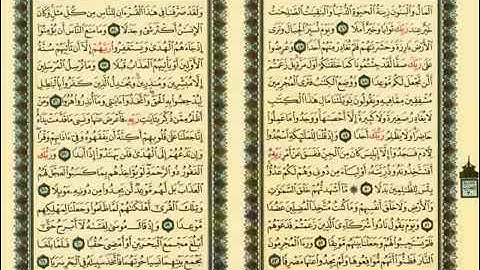 ٱلْمَالُ وَٱلْبَنُونَ زِينَةُ ٱلْحَيَوٰةِ ٱلدُّنْيَا وَٱلْبَٰقِيَٰتُ ٱلصَّٰلِحَٰتُ
خَيْرٌ عِندَ رَبِّكَ ثَوَابًا وَخَيْرٌ أَمَلًا ٤٦ وَيَوْمَ نُسَيِّرُ ٱلْجِبَالَ وَتَرَى
ٱلْأَرْضَ بَارِزَةً وَحَشَرْنَٰهُمْ فَلَمْ نُغَادِرْ مِنْهُمْ أَحَدًا ٤٧ وَعُرِضُوا۟
عَلَىٰ رَبِّكَ صَفًّا لَّقَدْ جِئْتُمُونَا كَمَا خَلَقْنَٰكُمْ أَوَّلَ مَرَّةٍۭ بَلْ زَعَمْتُمْ
أَلَّن نَّجْعَلَ لَكُم مَّوْعِدًا ٤٨ وَوُضِعَ ٱلْكِتَٰبُ فَتَرَى ٱلْمُجْرِمِينَ
مُشْفِقِينَ مِمَّا فِيهِ وَيَقُولُونَ يَٰوَيْلَتَنَا مَالِ هَٰذَا ٱلْكِتَٰبِ
لَا يُغَادِرُ صَغِيرَةً وَلَا كَبِيرَةً إِلَّآ أَحْصَىٰهَا وَوَجَدُوا۟ مَا عَمِلُوا۟
حَاضِرًا وَلَا يَظْلِمُ رَبُّكَ أَحَدًا ٤٩ وَإِذْ قُلْنَا لِلْمَلَٰٓئِكَةِ ٱسْجُدُوا۟
لِءَادَمَ فَسَجَدُوٓا۟ إِلَّآ إِبْلِيسَ كَانَ مِنَ ٱلْجِنِّ فَفَسَقَ عَنْ أَمْرِ رَبِّهِۦٓ
أَفَتَتَّخِذُونَهُۥ وَذُرِّيَّتَهُۥٓ أَوْلِيَآءَ مِن دُونِى وَهُمْ لَكُمْ عَدُوٌّۢ
بِئْسَ لِلظَّٰلِمِينَ بَدَلًا ٥٠ مَّآ أَشْهَدتُّهُمْ خَلْقَ ٱلسَّمَٰوَٰتِ
وَٱلْأَرْضِ وَلَا خَلْقَ أَنفُسِهِمْ وَمَا كُنتُ مُتَّخِذَ ٱلْمُضِلِّينَ عَضُدًا
٥١ وَيَوْمَ يَقُولُ نَادُوا۟ شُرَكَآءِىَ ٱلَّذِينَ زَعَمْتُمْ فَدَعَوْهُمْ
فَلَمْ يَسْتَجِيبُوا۟ لَهُمْ وَجَعَلْنَا بَيْنَهُم مَّوْبِقًا ٥٢ وَرَءَا ٱلْمُجْرِمُونَ
ٱلنَّارَ فَظَنُّوٓا۟ أَنَّهُم مُّوَاقِعُوهَا وَلَمْ يَجِدُوا۟ عَنْهَا مَصْرِفًا ٥٣
وَلَقَدْ صَرَّفْنَا فِى هَٰذَا ٱلْقُرْءَانِ لِلنَّاسِ مِن كُلِّ مَثَلٍ وَكَانَ
ٱلْإِنسَٰنُ أَكْثَرَ شَىْءٍ جَدَلًا ٥٤ وَمَا مَنَعَ ٱلنَّاسَ أَن يُؤْمِنُوٓا۟
إِذْ جَآءَهُمُ ٱلْهُدَىٰ وَيَسْتَغْفِرُوا۟ رَبَّهُمْ إِلَّآ أَن تَأْتِيَهُمْ سُنَّةُ
ٱلْأَوَّلِينَ أَوْ يَأْتِيَهُمُ ٱلْعَذَابُ قُبُلًا ٥٥ وَمَا نُرْسِلُ ٱلْمُرْسَلِينَ
إِلَّا مُبَشِّرِينَ وَمُنذِرِينَ وَيُجَٰدِلُ ٱلَّذِينَ كَفَرُوا۟ بِٱلْبَٰطِلِ
لِيُدْحِضُوا۟ بِهِ ٱلْحَقَّ وَٱتَّخَذُوٓا۟ ءَايَٰتِى وَمَآ أُنذِرُوا۟ هُزُوًا ٥٦ وَمَنْ
أَظْلَمُ مِمَّن ذُكِّرَ بِـَٔايَٰتِ رَبِّهِۦ فَأَعْرَضَ عَنْهَا وَنَسِىَ مَا قَدَّمَتْ يَدَاهُ
إِنَّا جَعَلْنَا عَلَىٰ قُلُوبِهِمْ أَكِنَّةً أَن يَفْقَهُوهُ وَفِىٓ ءَاذَانِهِمْ وَقْرًا
وَإِن تَدْعُهُمْ إِلَى ٱلْهُدَىٰ فَلَن يَهْتَدُوٓا۟ إِذًا أَبَدًا ٥٧ وَرَبُّكَ
ٱلْغَفُورُ ذُو ٱلرَّحْمَةِ لَوْ يُؤَاخِذُهُم بِمَا كَسَبُوا۟ لَعَجَّلَ لَهُمُ
ٱلْعَذَابَ بَل لَّهُم مَّوْعِدٌ لَّن يَجِدُوا۟ مِن دُونِهِۦ مَوْئِلًا ٥٨
وَتِلْكَ ٱلْقُرَىٰٓ أَهْلَكْنَٰهُمْ لَمَّا ظَلَمُوا۟ وَجَعَلْنَا لِمَهْلِكِهِم
مَّوْعِدًا ٥٩ وَإِذْ قَالَ مُوسَىٰ لِفَتَىٰهُ لَآ أَبْرَحُ حَتَّىٰٓ
أَبْلُغَ مَجْمَعَ ٱلْبَحْرَيْنِ أَوْ أَمْضِىَ حُقُبًا ٦٠ فَلَمَّا بَلَغَا
مَجْمَعَ بَيْنِهِمَا نَسِيَا حُوتَهُمَا فَٱتَّخَذَ سَبِيلَهُۥ فِى ٱلْبَحْرِ سَرَبًا ٦١